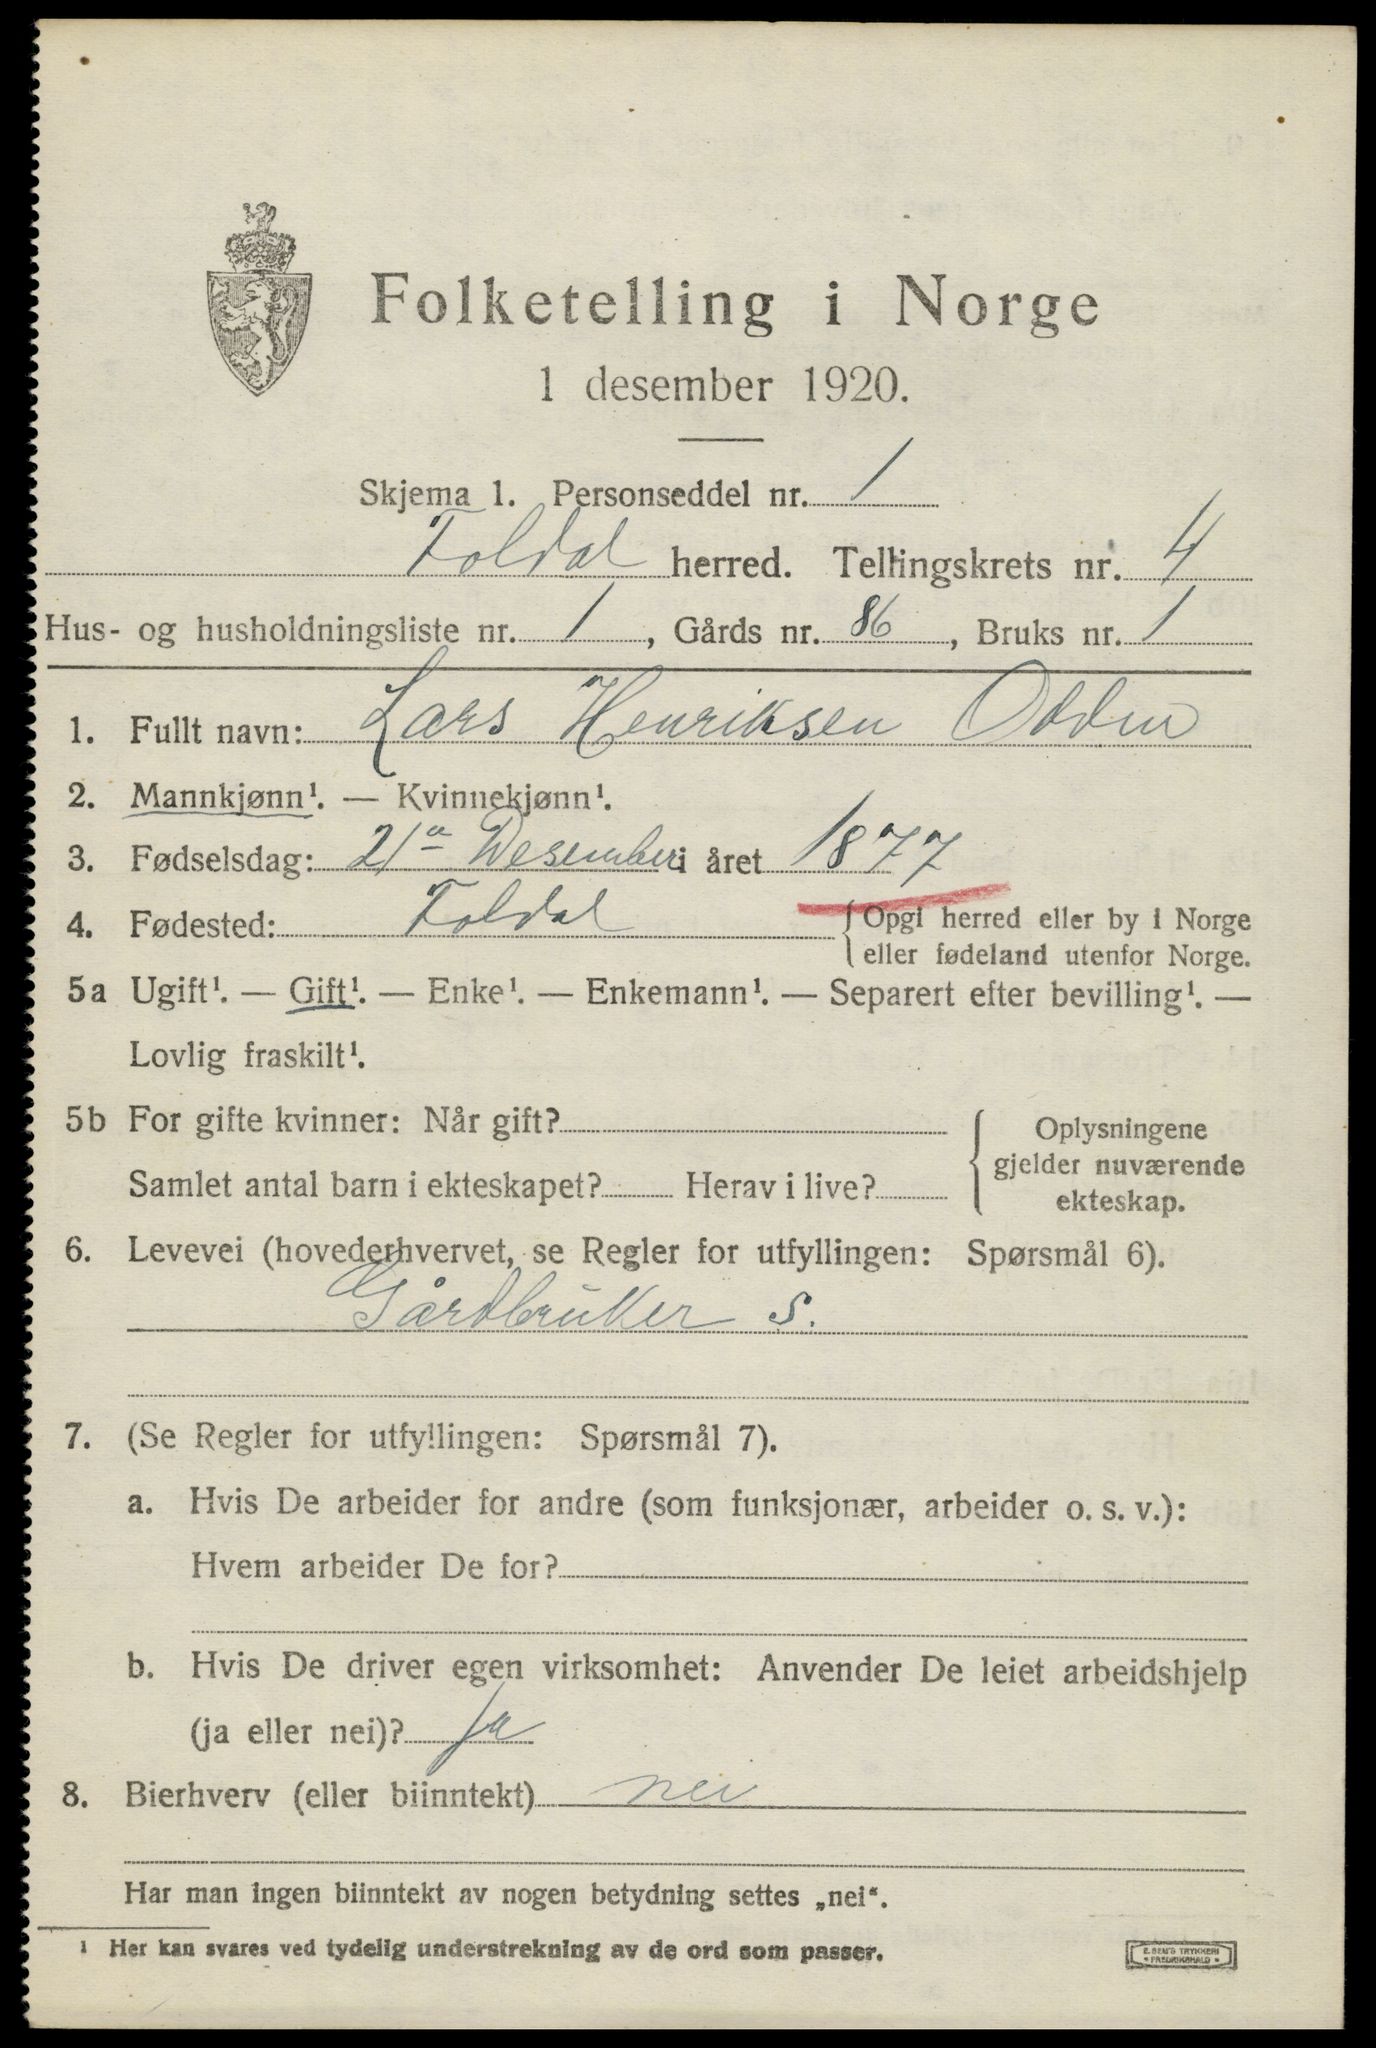 Folketelling i Norge
1 desember 1920.
Skjema 1. Personseddel nr. 1
Foldal herred. Tellingskrets nr. 4
Hus- og husholdningsliste nr. 1, Gårds nr. 86, Bruks nr. 1
1. Fullt navn: Lars Henriksen Odden
2. Mannkjønn¹. — Kvinnekjønn¹.
3. Fødselsdag: 21de Desember i året 1877
4. Fødested: Foldal { Opgi herred eller by i Norge
eller fødeland utenfor Norge.
5a Ugift¹. — Gift¹. — Enke¹. — Enkemann¹. — Separert efter bevilling¹. —
Lovlig fraskilt¹.
5b For gifte kvinner: Når gift?
Samlet antal barn i ekteskapet? Herav i live?
Oplysningene
gjelder nuværende
ekteskap.
6. Levevei (hovederhvervet, se Regler for utfyllingen: Spørsmål 6).
Gårdbruker S.
7. (Se Regler for utfyllingen: Spørsmål 7).
a. Hvis De arbeider for andre (som funksjonær, arbeider o. s. v.):
Hvem arbeider De for?
b. Hvis De driver egen virksomhet: Anvender De leiet arbeidshjelp
(ja eller nei)? ja
8. Bierhverv (eller biinntekt) nei
Har man ingen biinntekt av nogen betydning settes „nei“.
¹ Her kan svares ved tydelig understrekning av de ord som passer.
E. SEM'S TRYKKERI
FREDRIKSHALD